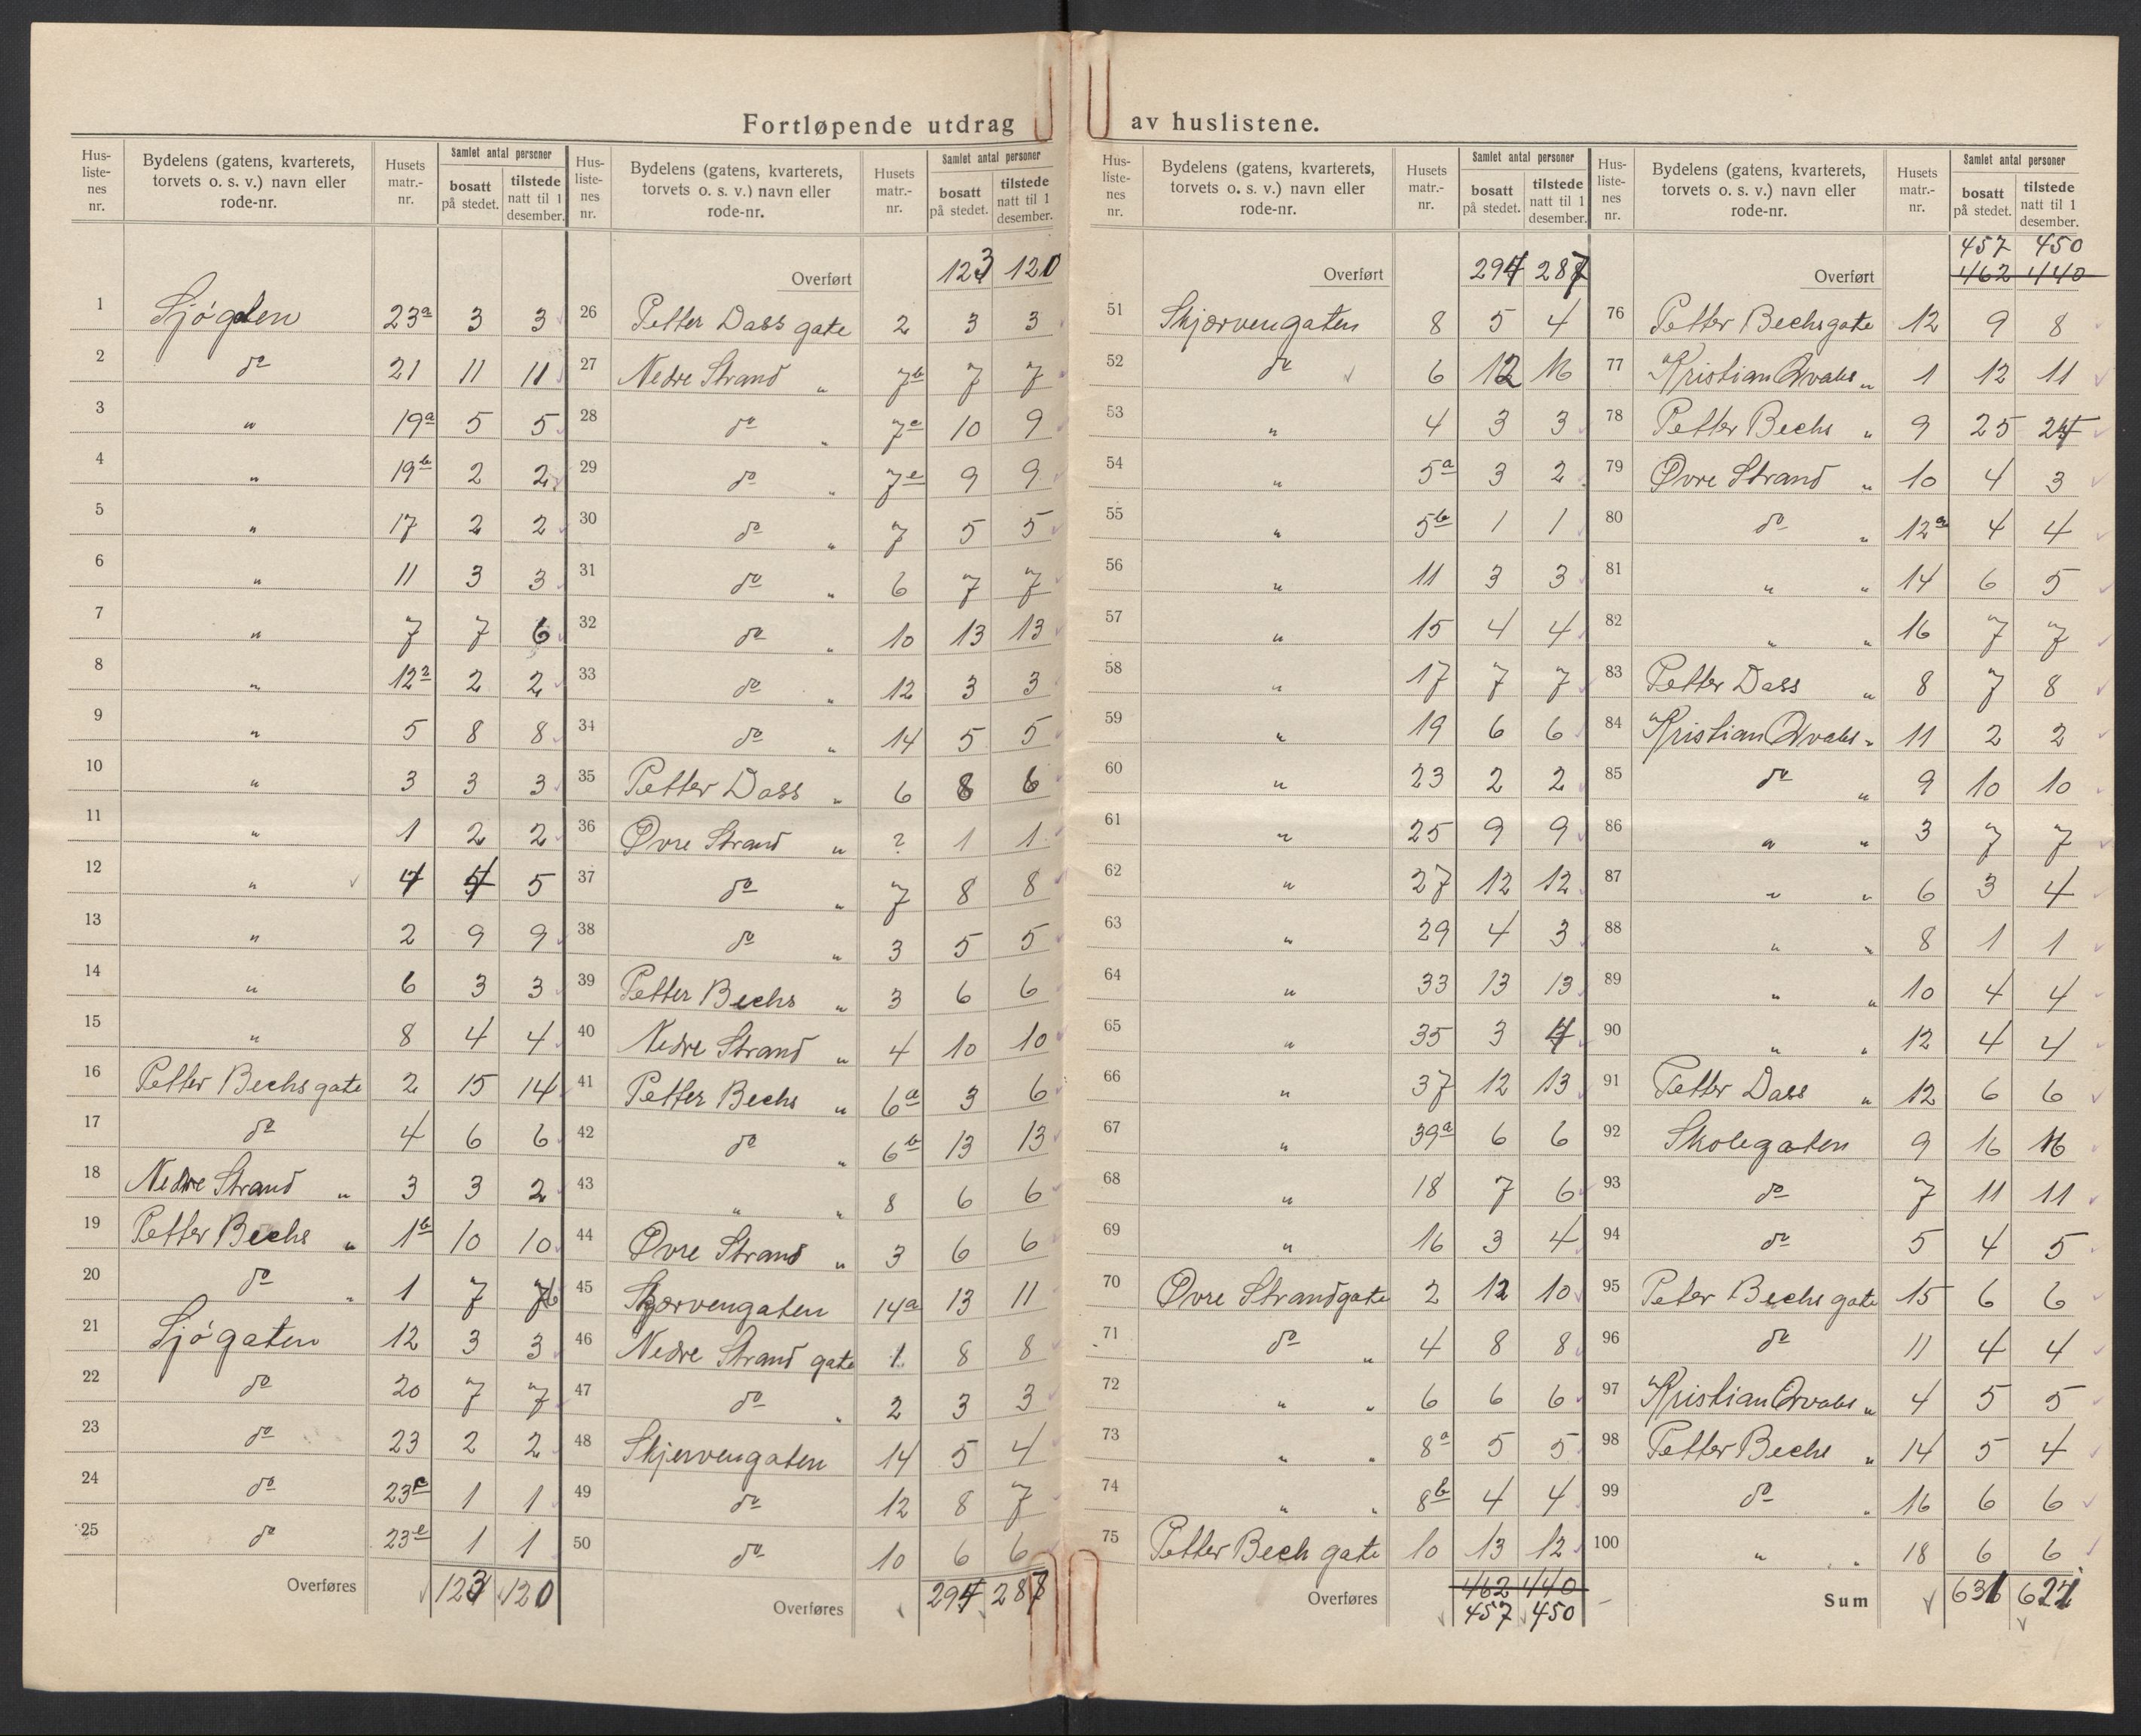 Fortløpende utdrag av huslistene.
Hus-listenes nr. | Bydelens (gatens, kvarterets, torvets o. s. v.) navn eller rode-nr. | Husets matr.-nr. | Samlet antal personer bosatt på stedet. | tilstede natt til 1 desember.
1 Sjøgaten 23a 3 3
2 do 21 11 11
3 " 19a 5 5
4 " 19b 2 2
5 " 17 2 2
6 " 11 3 3
7 " 7 7 6
8 " 12 2 2
9 " 5 8 8
10 " 3 3 3
11 " 1 2 2
12 " 4 5
13 " 2 9 9
14 " 6 3 3
15 " 8 4 4
16 Petter Bechs gate 2 15 14
17 do 4 6 6
18 Nedre Strand " 3 3 2
19 Petter Bechs " 1b 10 10
20 do " 1 7
21 Sjøgaten 12 3 3
22 do 20 7 7
23 do 23 2 2
24 do 23c 1 1
25 do 23e 1 1
Overføres 123 120
Hus-listenes nr. | Bydelens (gatens, kvarterets, torvets o. s. v.) navn eller rode-nr. | Husets matr.-nr. | Samlet antal personer bosatt på stedet. | tilstede natt til 1 desember.
Overført 123 120
26 Petter Dass gate 2 3 3
27 Nedre Strand " 7b 7 7
28 do " 7c 10 9
29 do " 7e 9 9
30 do " 7 5 5
31 do " 6 7 7
32 do " 10 13 13
33 do " 12 3 3
34 do " 14 5 5
35 Petter Dass " 6 8 6
36 Øvre Strand " ? 1 1
37 do " 7 8 8
38 do " 3 5 5
39 Petter Bechs " 3 6 6
40 Nedre Strand " 4 10 10
41 Petter Bechs " 6a 3 6
42 do " 6b 13 13
43 " " 8 6 6
44 Øvre Strand " 3 6 6
45 Skjærvengaten 14a 13 11
46 Nedre Strand gate 1 8 8
47 do " 2 3 3
48 Skjervengaten 14 5 4
49 do 12 8 7
50 do 10 6 6
Overføres 294 287
Hus-listenes nr. | Bydelens (gatens, kvarterets, torvets o. s. v.) navn eller rode-nr. | Husets matr.-nr. | Samlet antal personer bosatt på stedet. | tilstede natt til 1 desember.
Overført 294 287
51 Skjærvengaten 8 5 4
52 do 6 12 16
53 " 4 3 3
54 " 5a 3 2
55 " 5b 1 1
56 " 11 3 3
57 " 15 4 4
58 " 17 7 7
59 " 19 6 6
60 " 23 2 2
61 " 25 9 9
62 " 27 12 12
63 " 29 4 3
64 " 33 13 13
65 " 35 3 4
66 " 37 12 13
67 " 39a 6 6
68 " 18 7 6
69 " 16 3 4
70 Øvre Strandgate 2 12 10
71 do " 4 8 8
72 " " 6 6 6
73 " " 8a 5 5
74 " " 8b 4 4
75 Petter Bech gate 10 13 12
Overføres 462 440
457 450
Hus-listenes nr. | Bydelens (gatens, kvarterets, torvets o. s. v.) navn eller rode-nr. | Husets matr.-nr. | Samlet antal personer bosatt på stedet. | tilstede natt til 1 desember.
457 450
Overført 462 440
76 Petter Bechs gate 12 9 8
77 Kristian Qvales " 1 12 11
78 Petter Bechs " 9 25 24
79 Øvre Strand " 10 4 3
80 do " 12a 4 4
81 " " 14 6 5
82 " " 16 7 7
83 Petter Dass " 8 7 8
84 Kristian Qvales " 11 2 2
85 do " 9 10 10
86 " " 3 7 7
87 " " 6 3 4
88 " " 8 1 1
89 " " 10 4 4
90 " " 12 4 4
91 Petter Dass " 12 6 6
92 Skolegaten 9 16 16
93 do 7 11 11
94 do 5 4 5
95 Peter Bechs gate 15 6 6
96 do 11 4 4
97 Kristian Qvales " 4 5 5
98 Petter Bechs " 14 5 4
99 do " 16 6 6
100 " " 18 6 6
Sum 631 621